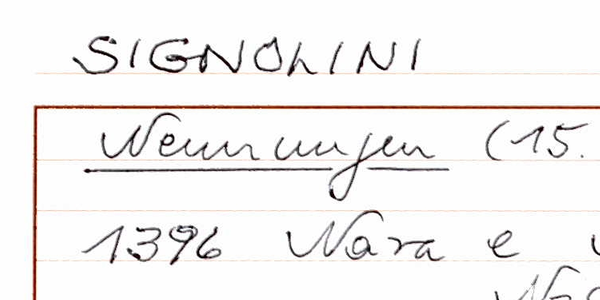 SIGNOLINI
Nennungen (15.
1396 Nara e